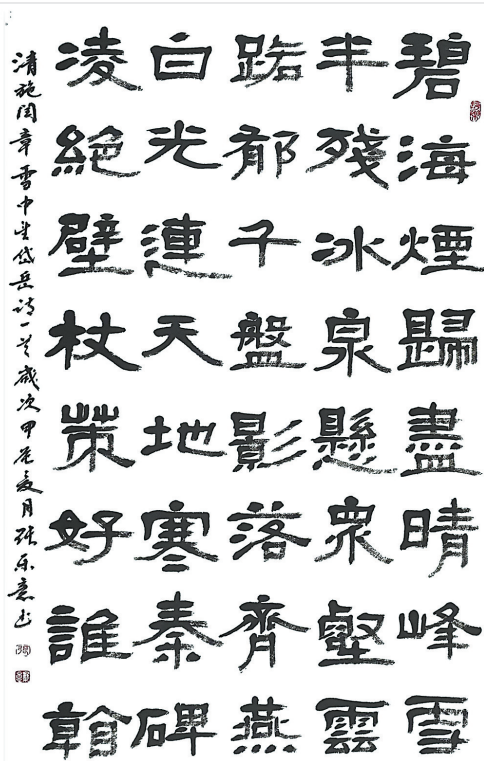 碧海煙歸盡晴峰雪
半殘冰泉懸眾壑雲
路郁千盤影落齊燕
白光連天地寒秦碑
凌絕壁杖策好誰看
清施闰章雪中望岱岳诗一首歲次甲辰夏月张乐意书